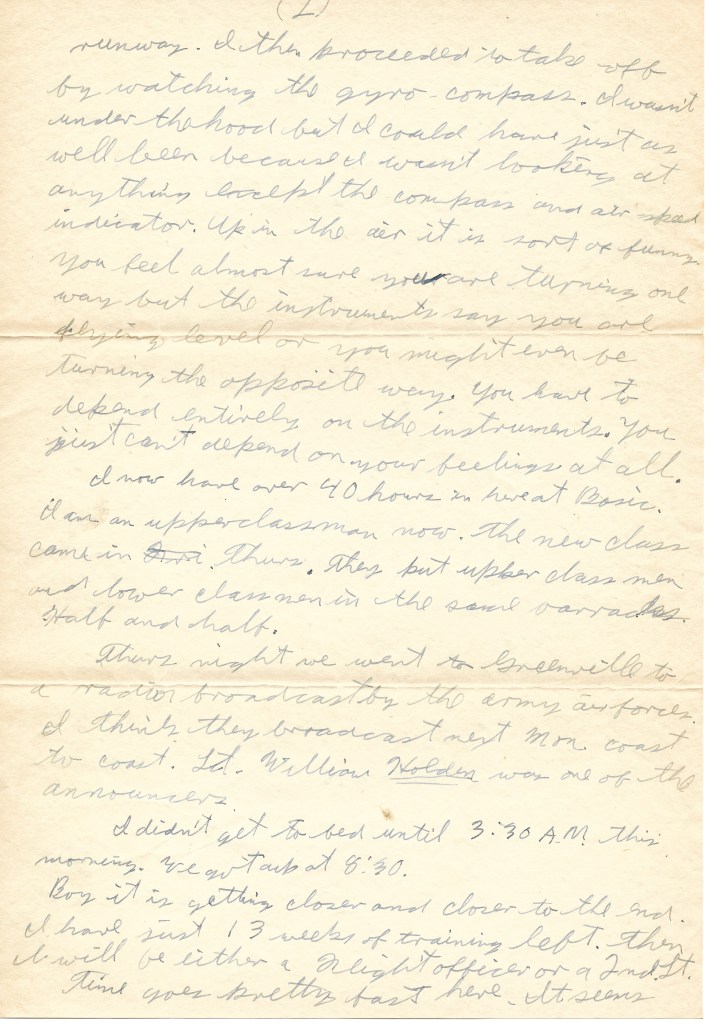 (2)
runway. I then proceeded to take off
by watching the gyro-compass. I wasn't
under the hood but I could have just as
well been because I wasn't looking at
anything except the compass and air speed
indicator. Up in the air it is sort of funny.
You feel almost sure you are turning one
way but the instruments say you are
flying level or you might even be
turning the opposite way. You have to
depend entirely on the instruments. You
just can't depend on your feelings at all.
I now have over 40 hours in here at Basic.
I am an upperclassman now. The new class
came in Thurs. They put upper class men
and lower classmen in the same barracks.
Half and half.
Thurs night we went to Greenville to
a radio broadcast by the army air forces.
I think they broadcast next Mon. coast
to coast. Lt. William Holden was one of the
announcers.
I didn't get to bed until 3:30 A.M. this
morning. We got up at 8:30.
Boy it is getting closer and closer to the end.
I have just 13 weeks of training left. Then
I will be either a Flight officer or a 2nd. Lt.
Time goes pretty fast here. It seems